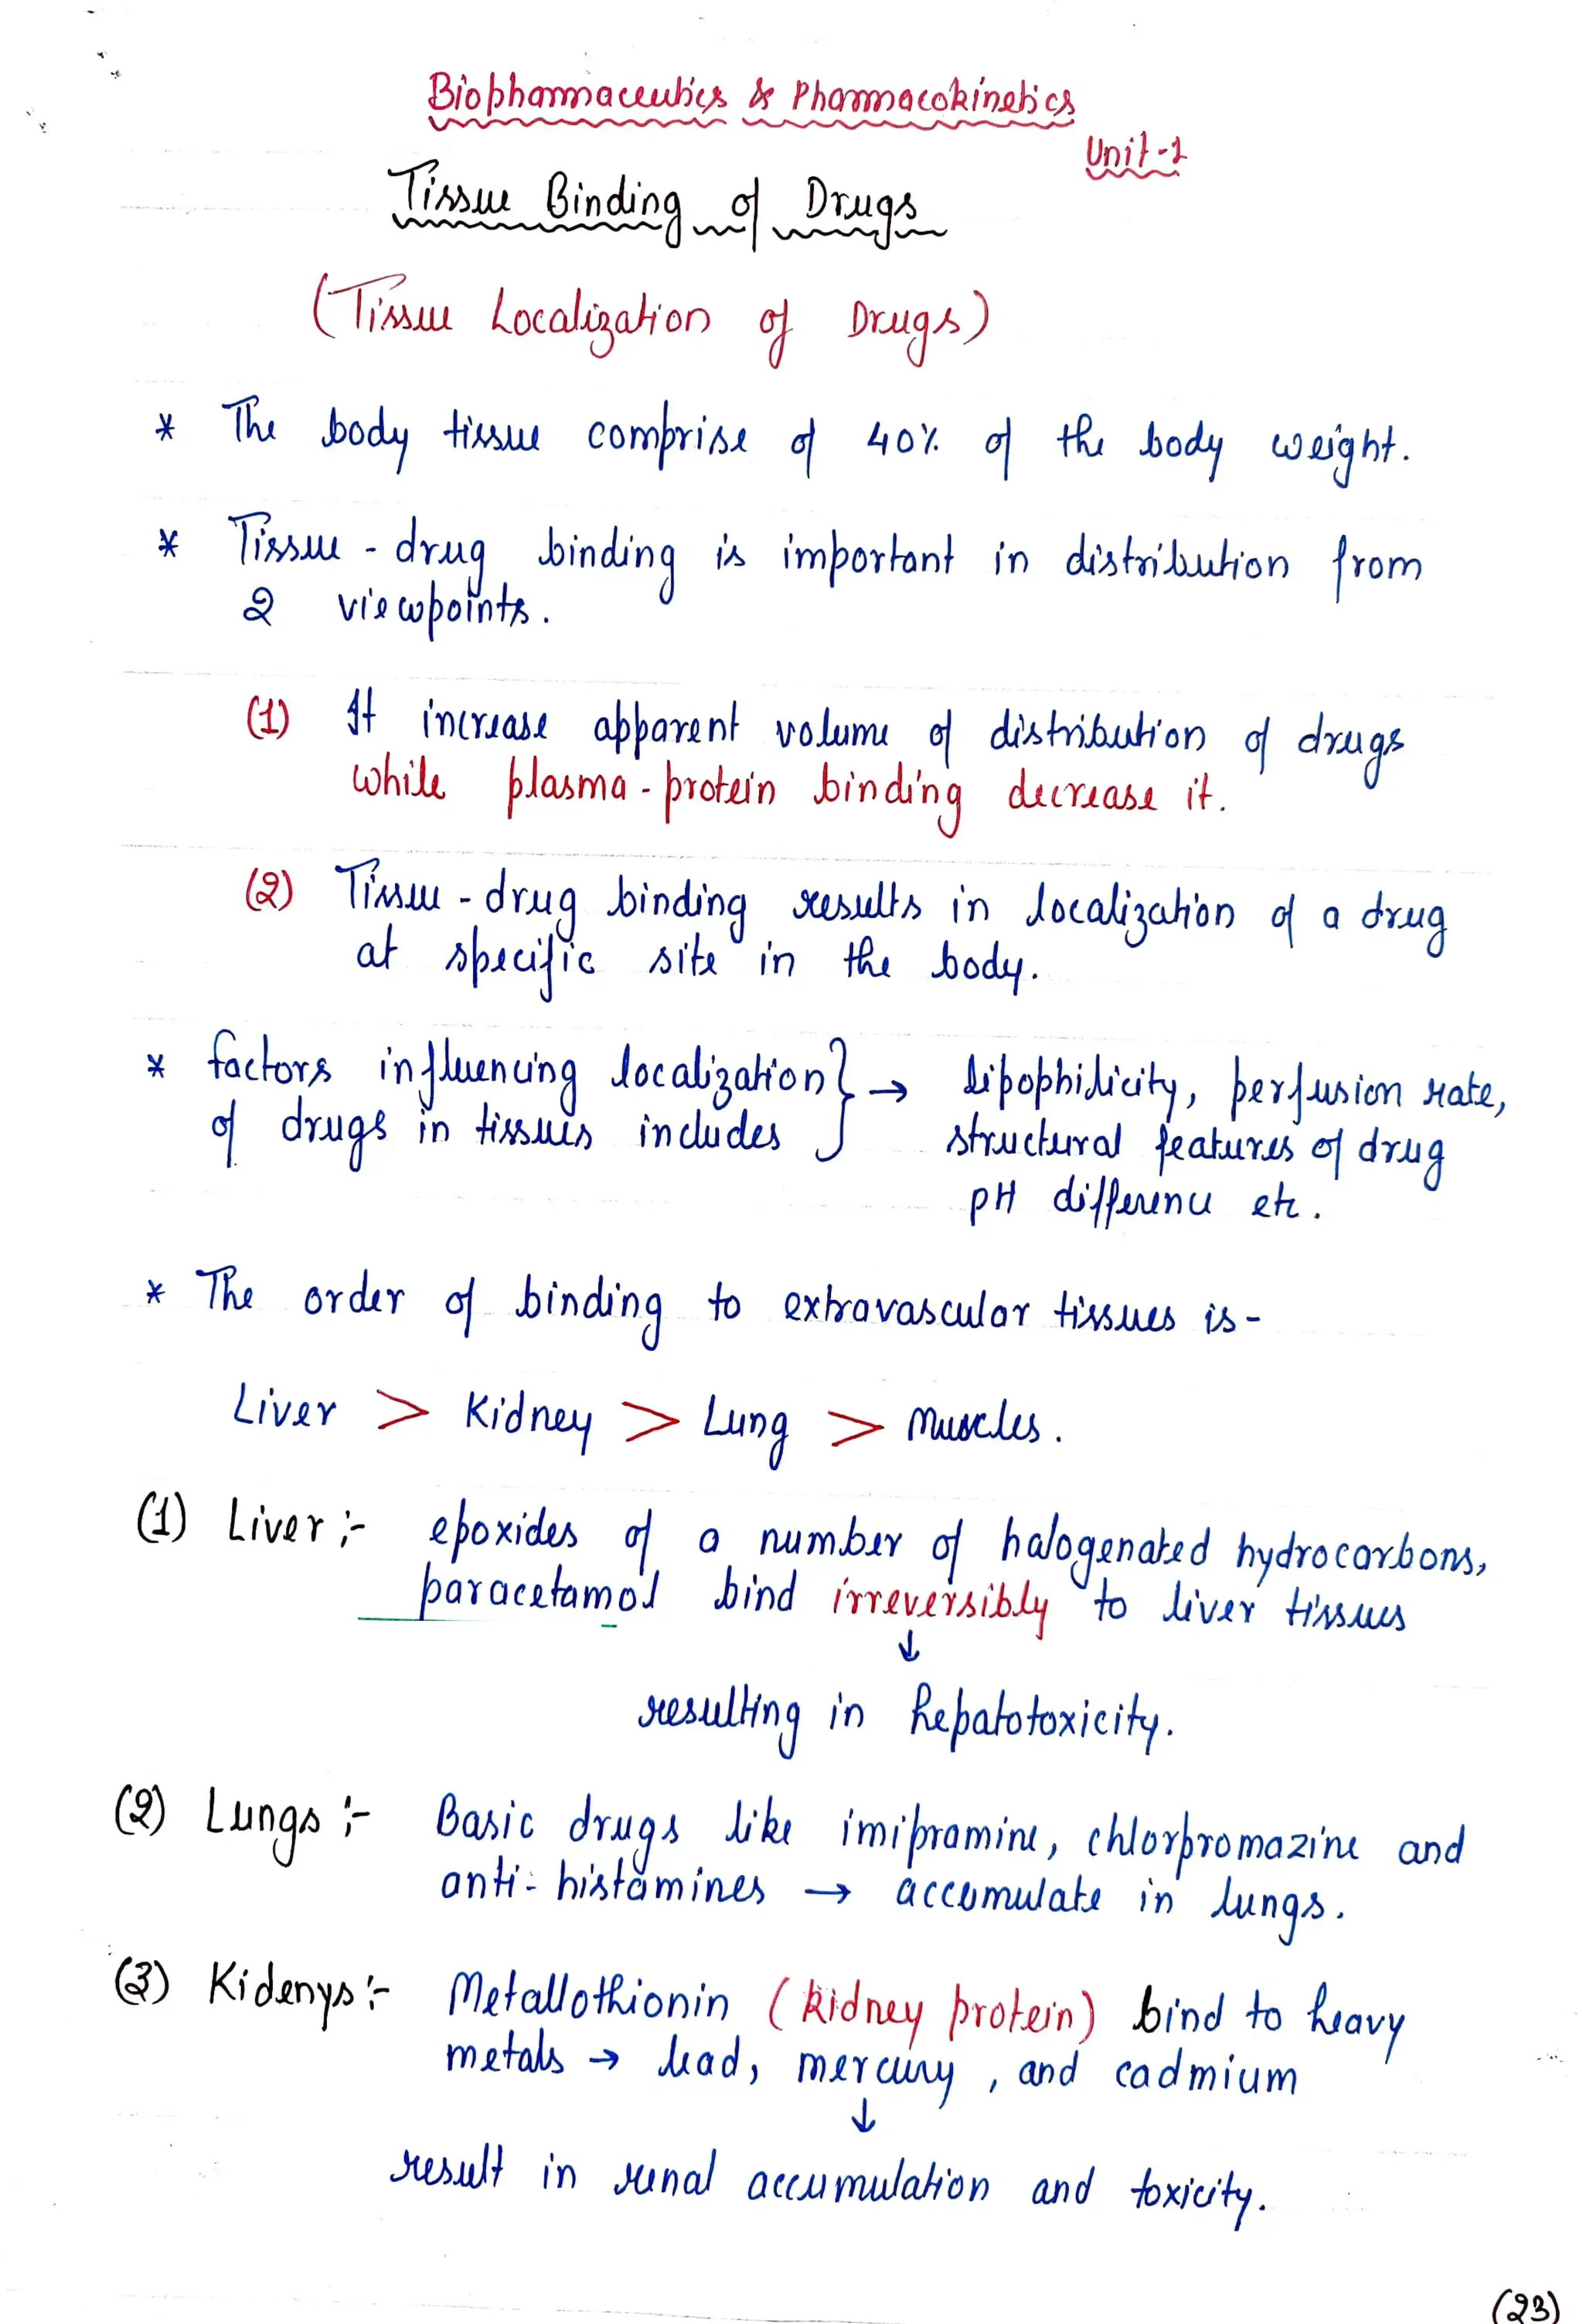 Biopharmaceutics & Pharmacokinetics
Unit-1
Tissue Binding of Drugs
(Tissue Localization of Drugs)
* The body tissue comprise of 40% of the body weight.
* Tissue - drug binding is important in distribution from
2 viewpoints.
(1) It increase apparent volume of distribution of drugs
while plasma - protein binding decrease it.
(2) Tissue - drug binding results in localization of a drug
at specific site in the body.
* factors influencing localization } → Lipophilicity, perfusion rate,
of drugs in tissues includes structural features of drug
pH difference etc.
* The order of binding to extravascular tissues is -
Liver > Kidney > Lung > Muscles.
(1) Liver :- epoxides of a number of halogenated hydrocarbons,
paracetamol bind irreversibly to liver tissues
↓
resulting in hepatotoxicity.
(2) Lungs :- Basic drugs like imipramine, chlorpromazine and
anti-histamines → accumulate in lungs.
(3) Kidenys :- Metallothionin (kidney protein) bind to heavy
metals → lead, mercury, and cadmium
↓
result in renal accumulation and toxicity.
(23)